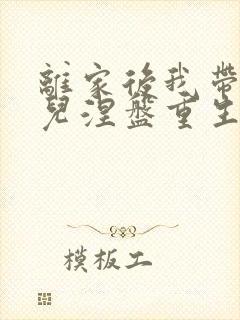 離家後我帶
兒涅盤重生
模板工